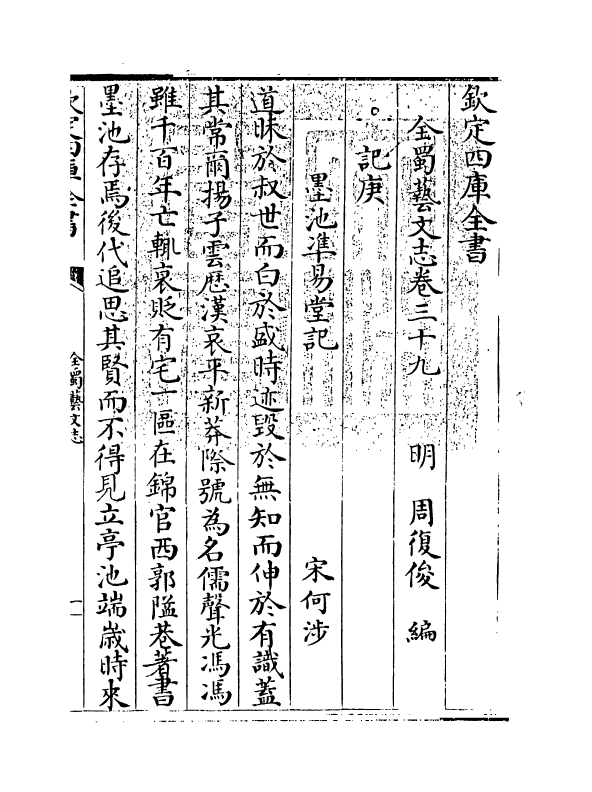 欽定四庫全書
全蜀藝文志卷三十九　明　周復俊　編
記庚
墨池準易堂記　宋何涉
道昧於叔世而白於盛時迹毀於無知而伸於有識蓋
其常爾揚子雲歴漢哀平新莽際號為名儒聲光馮馮
雖千百年亡輒衰貶有宅一區在錦官西郭隘巷著書
墨池存焉後代追思其賢而不得見立亭池端歲時來
欽定四庫全書
全蜀藝文志
一